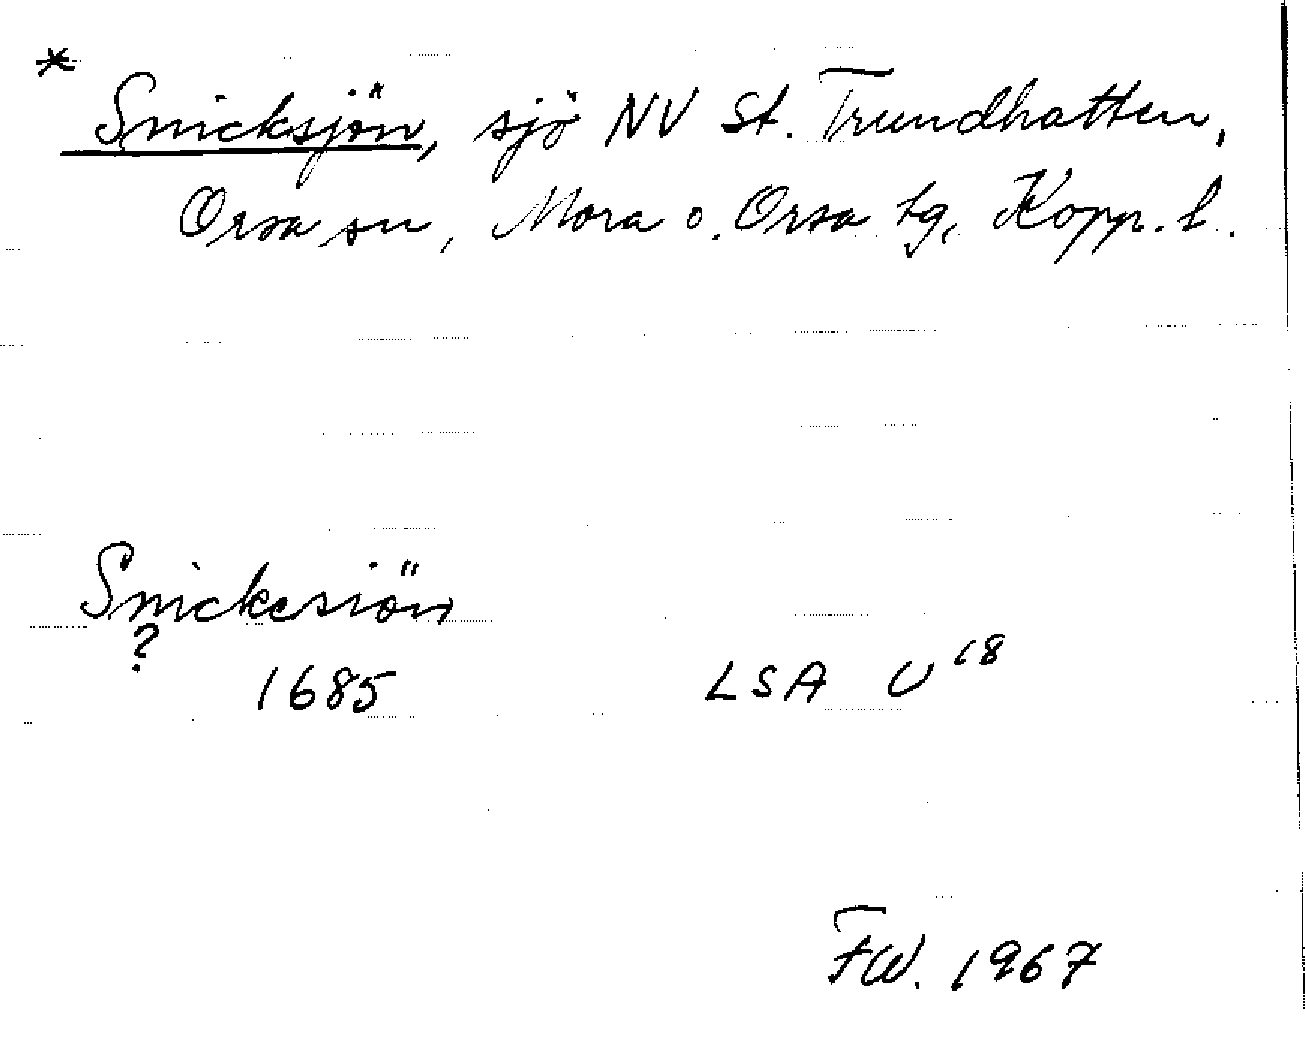 * Snicksjön, sjö NV St. Trundhatten,
Orsa sn, Mora o. Orsa tg, Kopp. l.
Snickesiön
?
1685 LSA U 18
FW. 1967